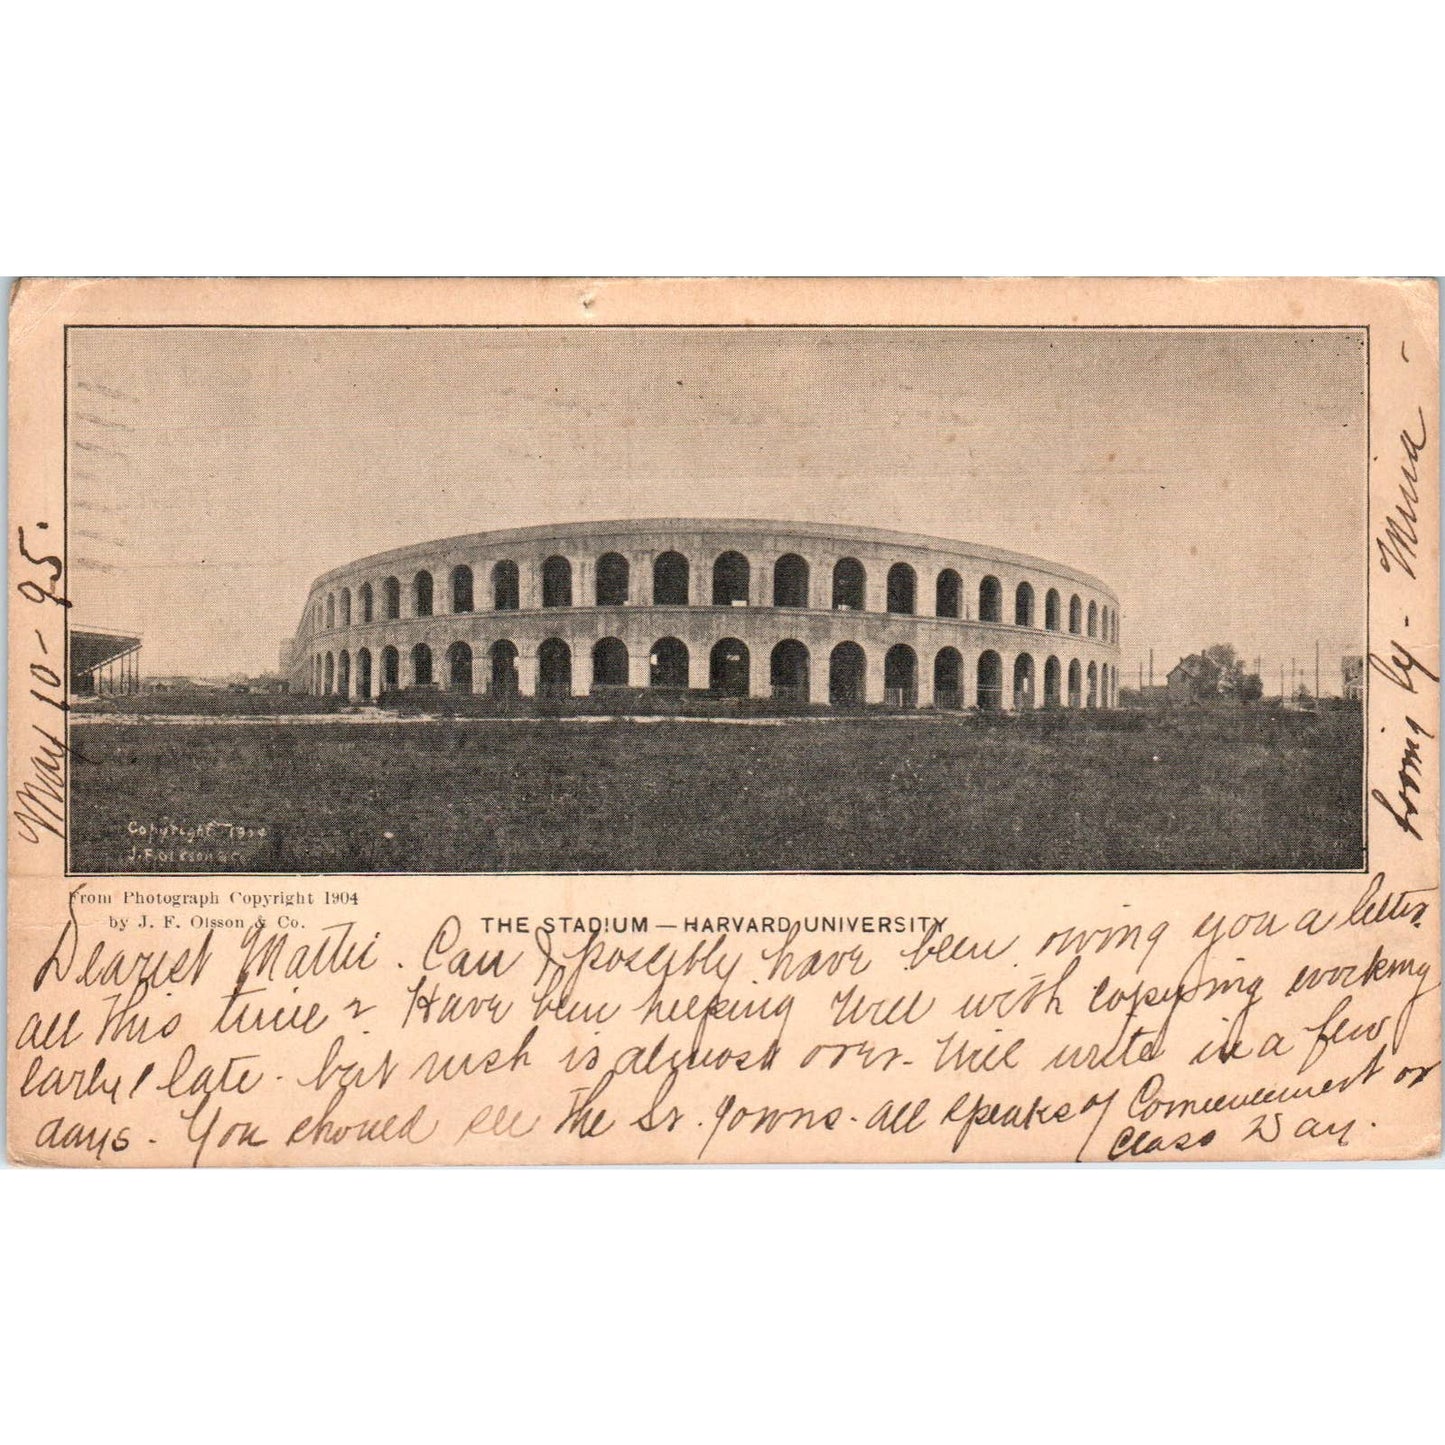 May 10-95.
Copyright 1904
J.F. Olsson & Co
From Photograph Copyright 1904
by J. F. Olsson & Co.
THE STADIUM — HARVARD UNIVERSITY
Dearest Mattie. Can I possibly have been owing you a letter
all this time? Have been helping Will with copying working
early & late - but rush is almost over - Will write in a few
days - You should see the Sr. gowns - all speaks of Commencement or
Class Day.
by - Mina -